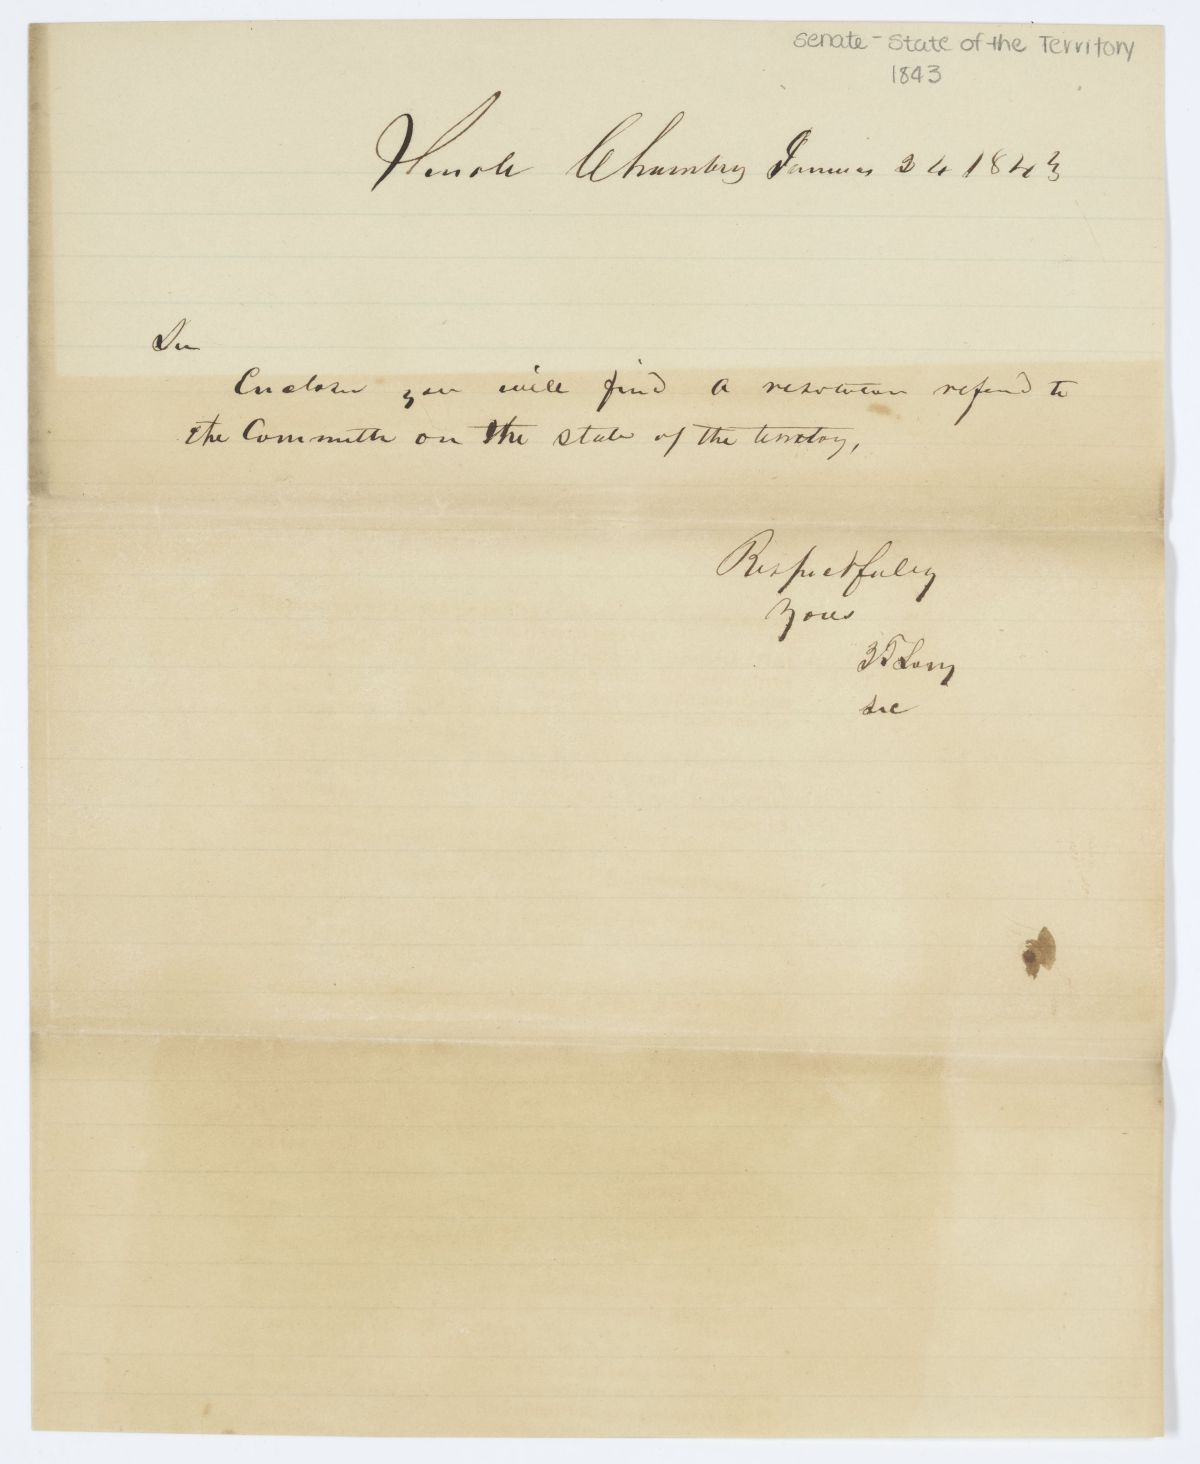 Senate - State of the Territory
1843
Senate Chamber January 24 1843
Sir
Enclosed you will find a resolution referd to
the Committe on the state of the territory,
Respectfully
Yours
Long
Sec